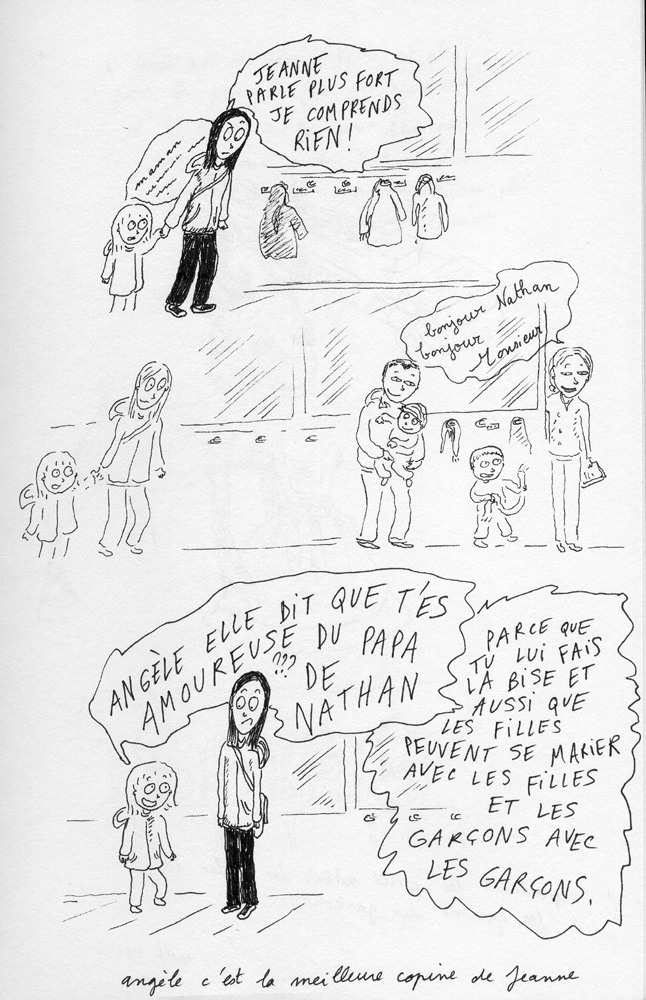 JEANNE
PARLE PLUS FORT
JE COMPRENDS
RIEN!
maman
bonjour Nathan
bonjour
Monsieur
ANGÈLE ELLE DIT QUE T'ES
AMOUREUSE DU PAPA
??? DE
NATHAN
PARCE QUE
TU LUI FAIS
LA BISE ET
AUSSI QUE
LES FILLES
PEUVENT SE MARIER
AVEC LES FILLES
ET LES
GARÇONS AVEC
LES GARÇONS.
angèle c'est la meilleure copine de Jeanne